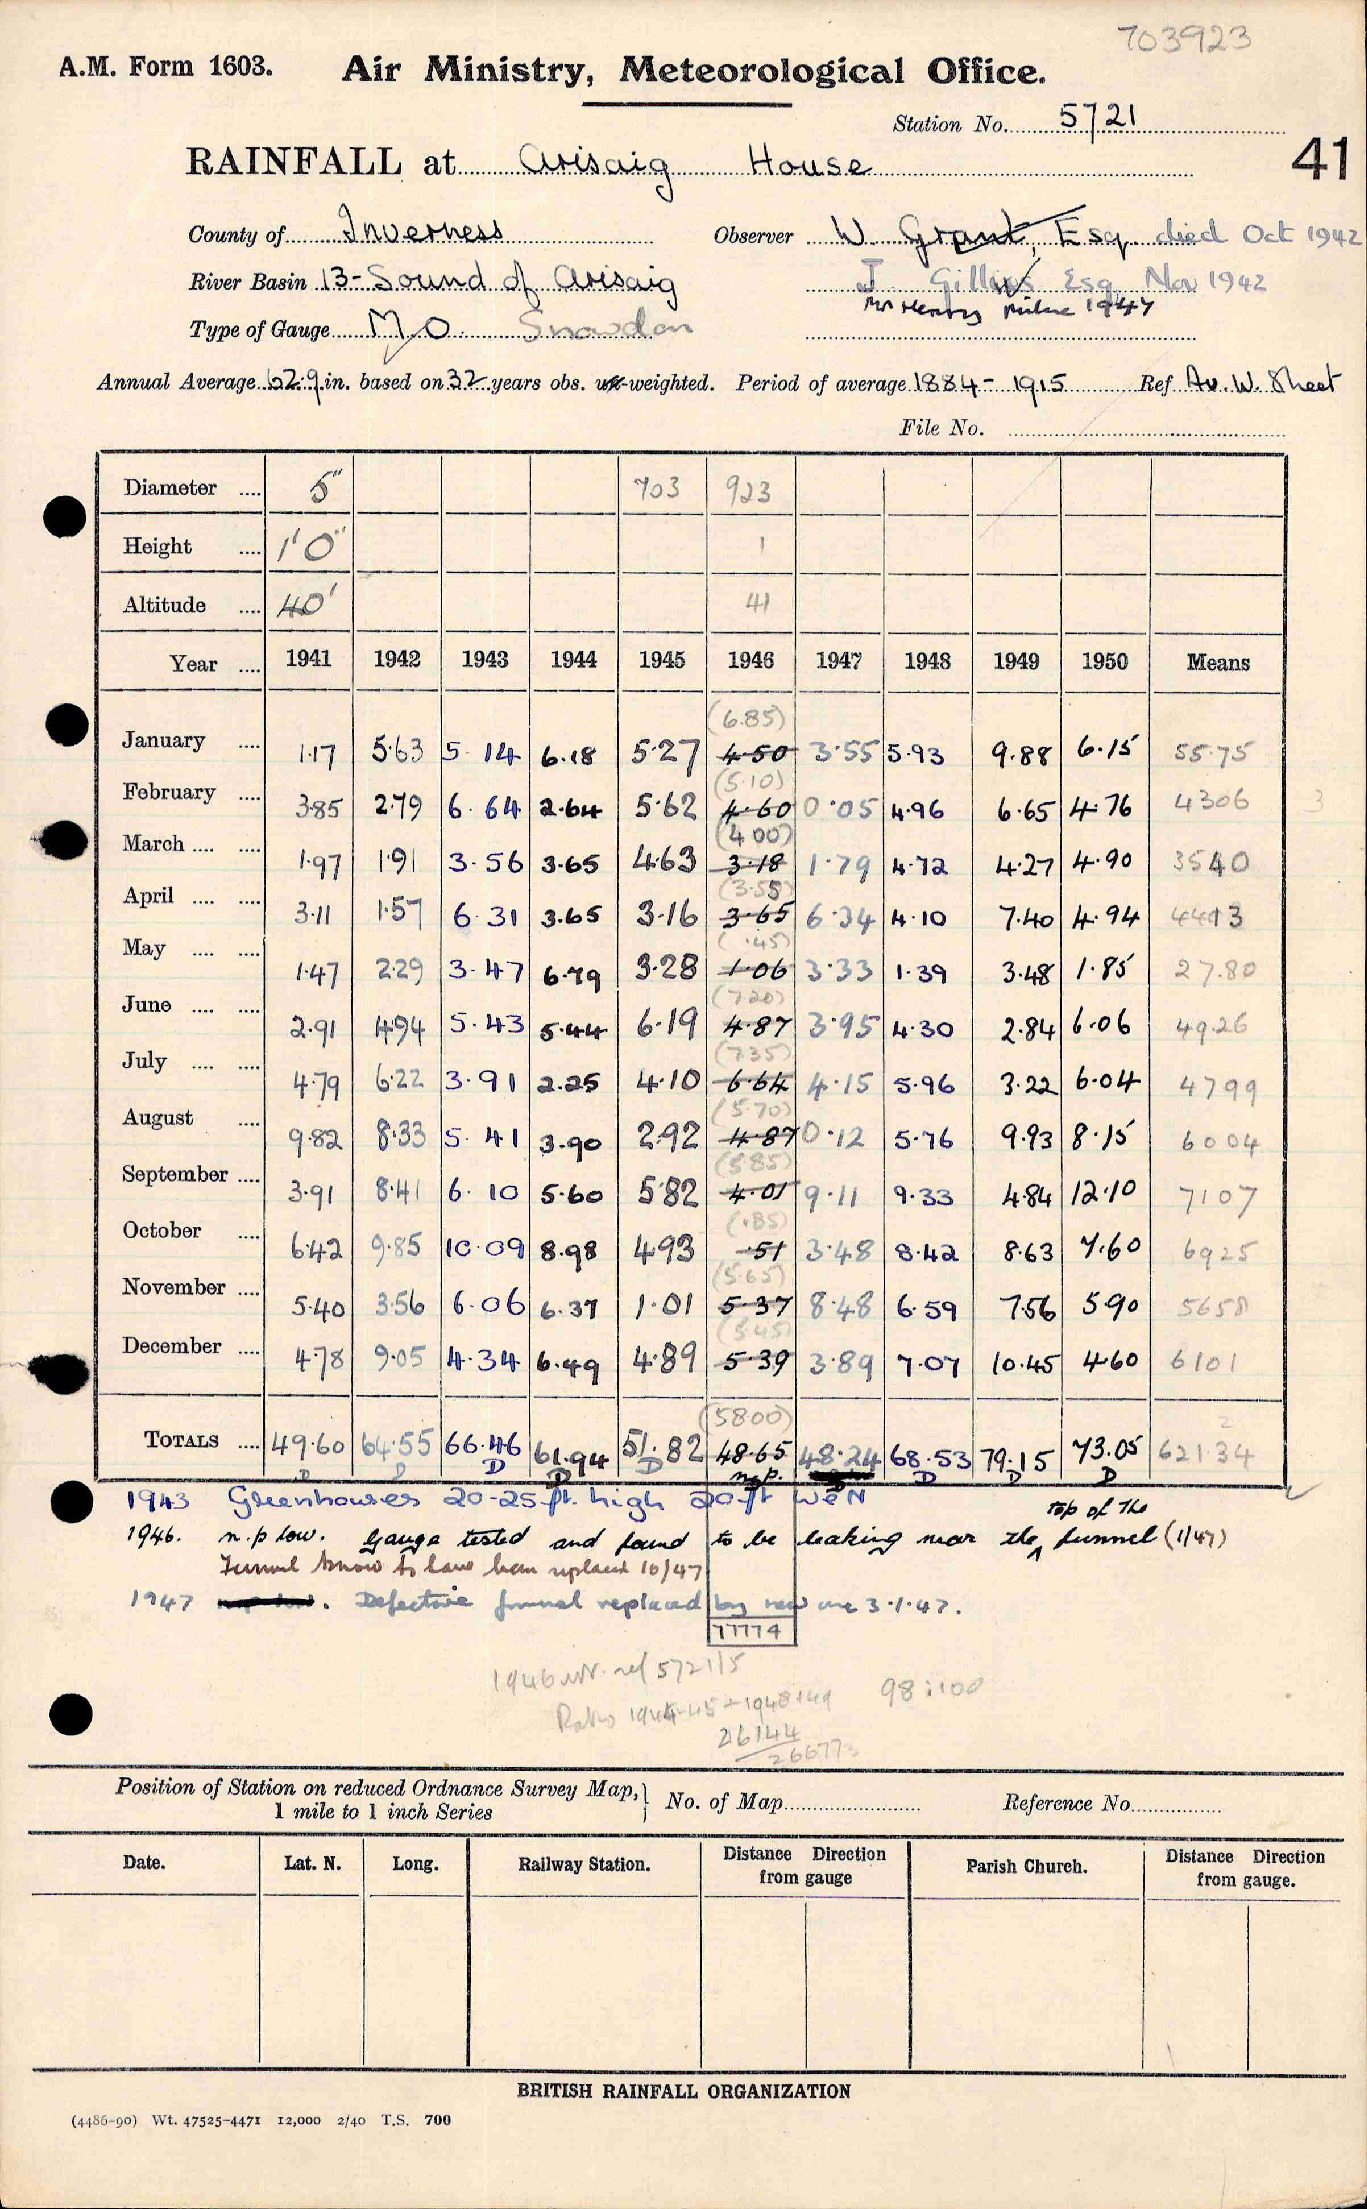 703923
A.M. Form 1603. Air Ministry, Meteorological Office.
Station No. 5721
41
RAINFALL at Arisaig House
County of Inverness Observer W. Grant, Esq. died Oct 1942
River Basin 13-Sound of Arisaig J Gillies Esq Nov 1942
Mr Henry Milne 1947
Type of Gauge M.O. Snowdon
Annual Average 62.9 in. based on 32 years obs. un-weighted. Period of average 1884-1915 Ref Av. W. Sheet
File No.
Diameter .... 5" 703 923
Height .... 1'0" 1
Altitude .... 40' 41
Year .... 1941 1942 1943 1944 1945 1946 1947 1948 1949 1950 Means
(6.85)
January .... 1.17 5.63 5.14 6.18 5.27 4.50 3.55 5.93 9.88 6.15 55.75
(5.10)
February .... 3.85 2.79 6.64 2.64 5.62 4.60 0.05 4.96 6.65 4.76 4306 3
(4.00)
March .... .... 1.97 1.91 3.56 3.65 4.63 3.18 1.79 4.72 4.27 4.90 3540
(3.55)
April .... .... 3.11 1.57 6.31 3.65 3.16 3.65 6.34 4.10 7.40 4.94 4413
(.45)
May .... .... 1.47 2.29 3.47 6.79 3.28 1.06 3.33 1.39 3.48 1.85 27.80
(7.20)
June .... .... 2.91 4.94 5.43 5.44 6.19 4.87 3.95 4.30 2.84 6.06 49.26
(7.35)
July .... .... 4.79 6.22 3.91 2.25 4.10 6.64 4.15 5.96 3.22 6.04 4799
(5.70)
August .... 9.82 8.33 5.41 3.90 2.92 4.87 0.12 5.76 9.93 8.15 6004
(5.85)
September .... 3.91 8.41 6.10 5.60 5.82 4.01 9.11 9.33 4.84 12.10 7107
(.85)
October .... 6.42 9.85 10.09 8.98 4.93 .51 3.48 8.42 8.63 7.60 6925
(5.65)
November .... 5.40 3.56 6.06 6.37 1.01 5.37 8.48 6.59 7.56 5.90 5658
(5.45)
December .... 4.78 9.05 4.34 6.49 4.89 5.39 3.89 7.07 10.45 4.60 6101
(5800) 2
TOTALS .... 49.60 64.55 66.46 61.94 51.82 48.65 48.24 68.53 79.15 73.05 621.34
D D D D D n.p. D D D
1943 Greenhouses 20-25 ft. high 20 ft W & N
top of the
1946. n.p low. Gauge tested and found to be leaking near the funnel (1/47)
Funnel know to have been replaced 10/47
1947 n.p low. Defective funnel replaced by new one 3.1.47.
77774
1946 ref 5721/5
Ratio 1944-45+1948+49 98:100
26144
26677
Position of Station on reduced Ordnance Survey Map, No. of Map Reference No.
1 mile to 1 inch Series
Date. Lat. N. Long. Railway Station. Distance from gauge Direction Parish Church. Distance Direction from gauge.
BRITISH RAINFALL ORGANIZATION
(4486-90) Wt. 47525-4471 12,000 2/40 T.S. 700